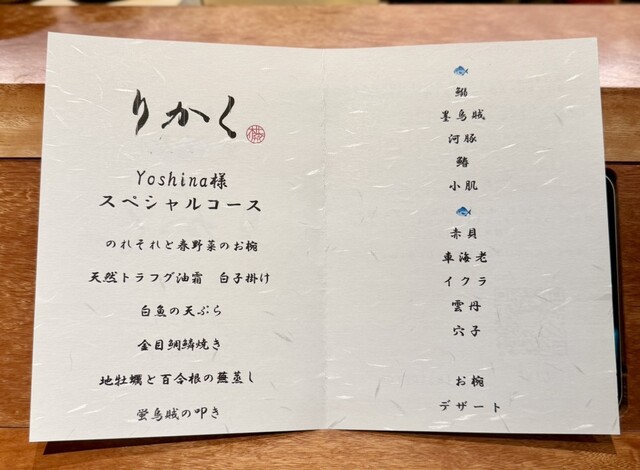 りかく
Yoshina様
スペシャルコース
のれそれと春野菜のお椀
天然トラフグ油霜 白子掛け
白魚の天ぷら
金目鯛鱗焼き
地牡蠣と百合根の蕪蒸し
蛍烏賊の叩き
鰤
墨烏賊
河豚
鰆
小肌
赤貝
車海老
イクラ
雲丹
穴子
お椀
デザート